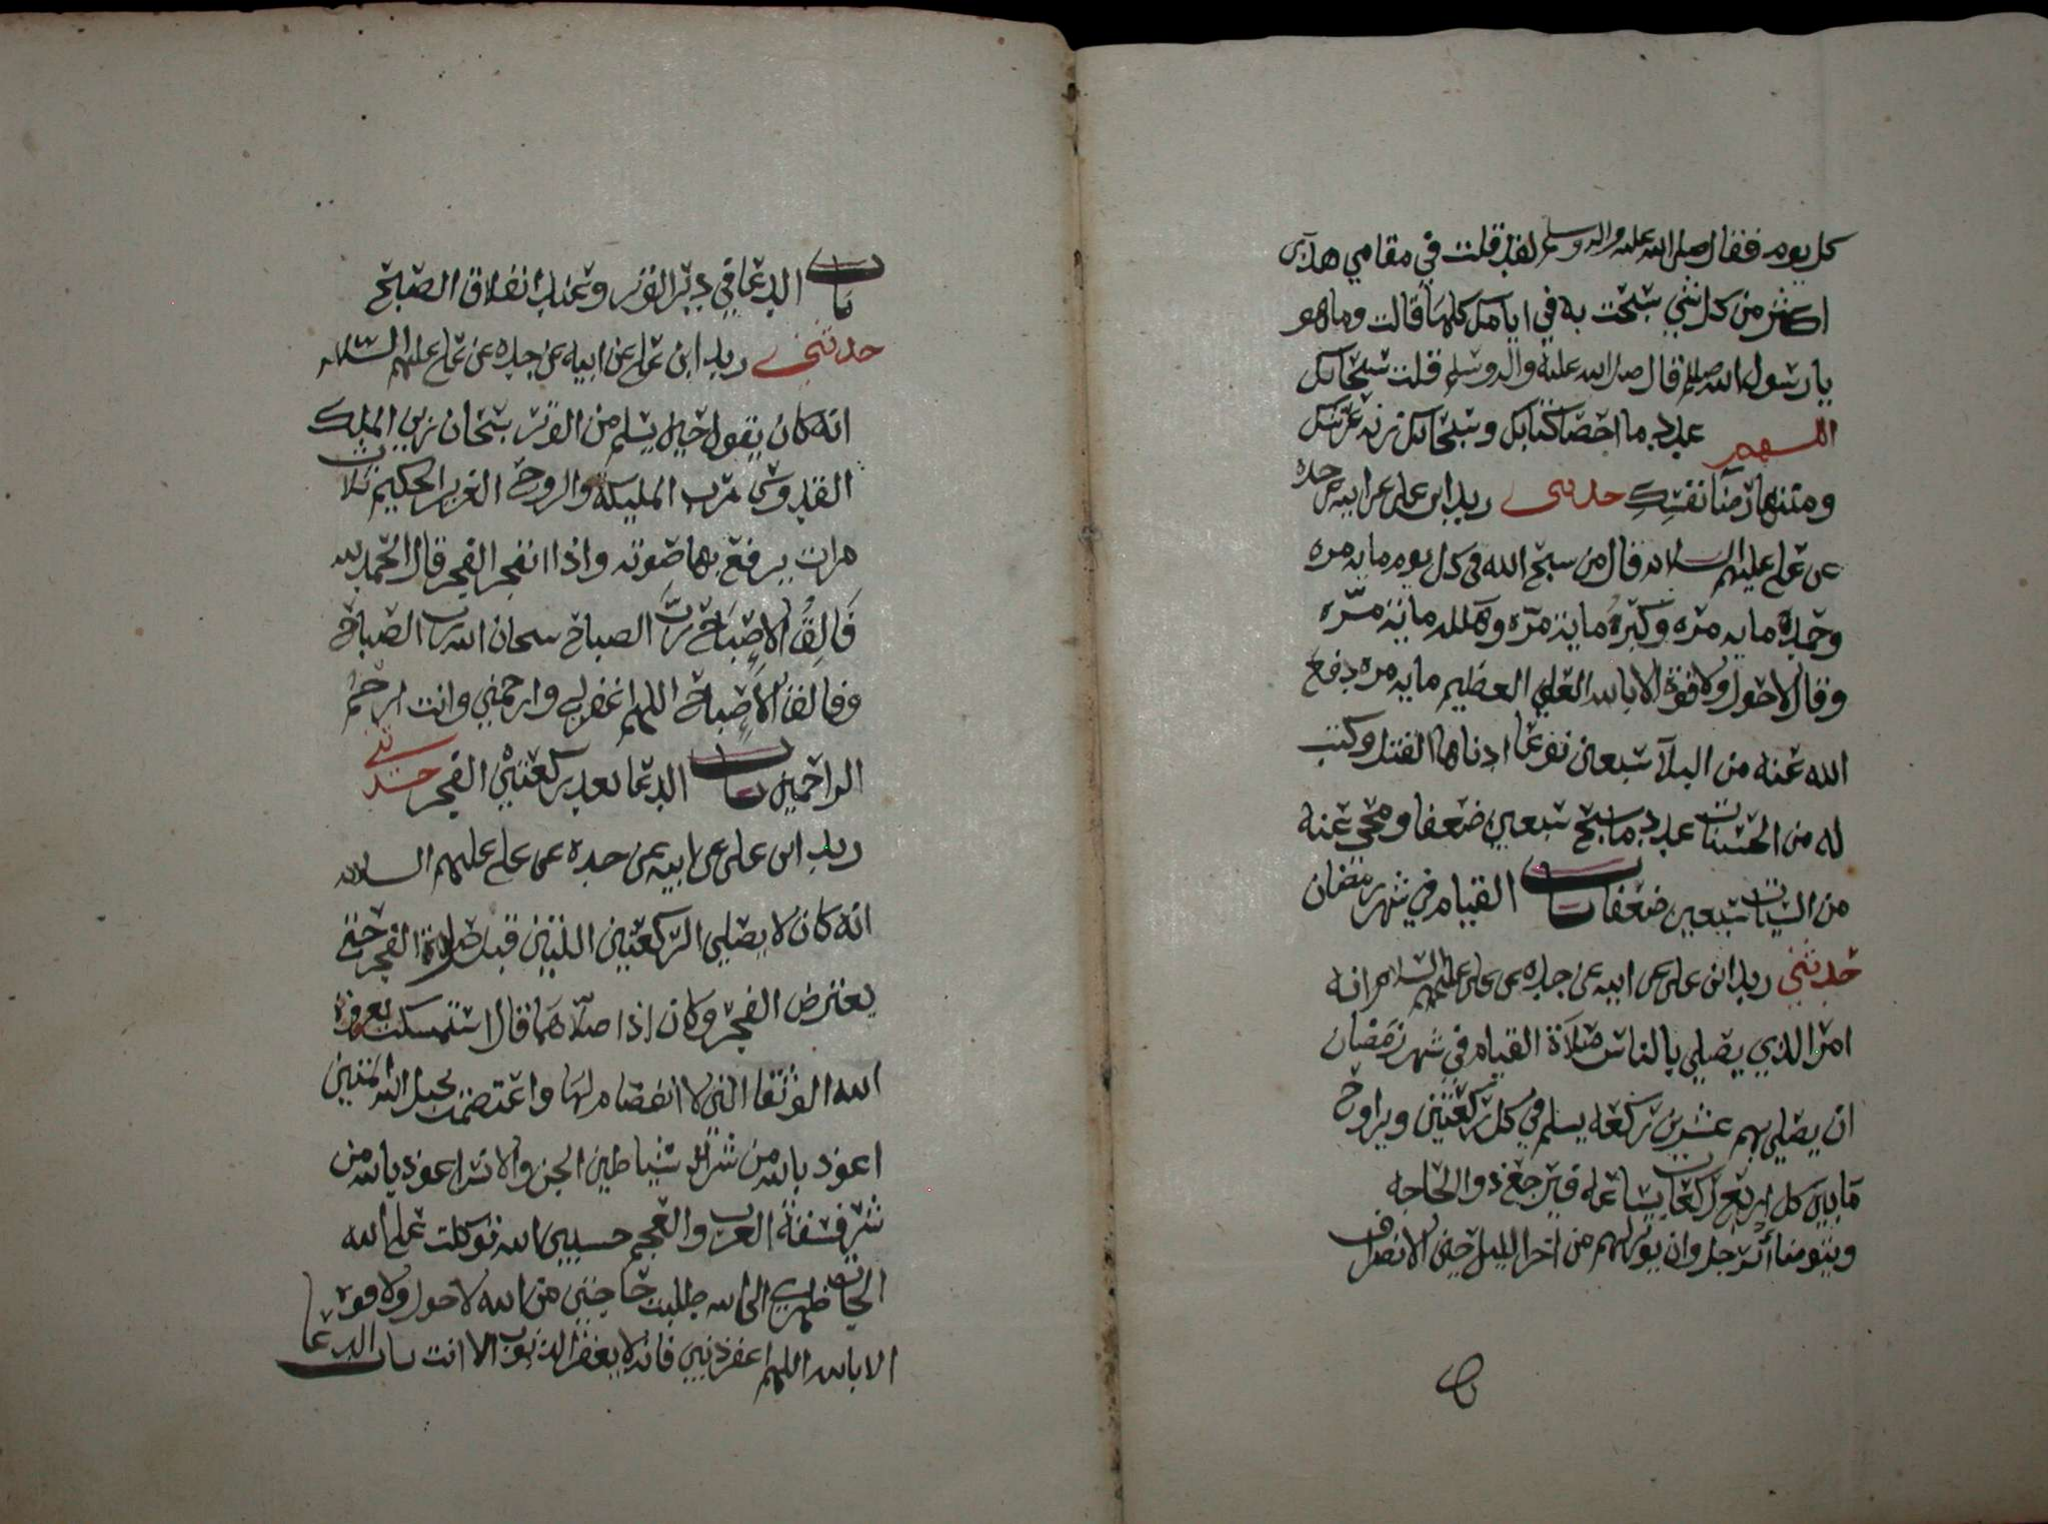 كل يوم فقال صلى الله عليه واله وسلم لقد قلت في مقامي هذا
اكثر من كل شي سبحت به في ايامك كلها قالت وما هو
يا رسول الله صللم قال صلى الله عليه واله وسلم قلت سبحانك
اللهم عدد ما احصا كتابك وسبحانك زنة عرشك
ومنتها رضا نفسك حدثني زيد ابن علي عن ابيه عن جده
عن علي عليهم السلام قال من سبح الله في كل يوم مايه مره
وحمده مايه مره وكبره مايه مره وهلله مايه مره
وقال لا حول ولا قوة الا بالله العلي العظيم مايه مره دفع
الله عنه من البلآ سبعين نوعا ادناها القتل وكتب
له من الحسنات عدد ما سبح سبعين ضعفا ومحى عنه
من السيات سبعين ضعفا باب القيام في شهر رمضان
حدثني زيد ابن علي عن ابيه عن جده عن علي عليهم السلام انه
امر الذي يصلي بالناس صلاة القيام في شهر رمضان
ان يصلي بهم عشرين ركعه يسلم في كل ركعتين ويراوح
ما بين كل اربع ركعات ساعه فيرجع ذو الحاجه
ويتوضا الرجل وان يوتر بهم من اخر الليل حين الانصراف
باب الدعا في دبر الوتر وعند انفلاق الصبح
حدثني زيد ابن علي عن ابيه عن جده عن علي عليهم السلام
انه كان يقول حين يسلم من الوتر سبحان ربي الملك
القدوس رب المليكة والروح العزيز الحكيم ثلاث
مرات يرفع بها صوته واذا انفجر الفجر قال الحمد لله
فالق الاصباح رب الصباح سبحان الله رب الصباح
وفالق الاصباح اللهم اغفر لي وارحمني وانت ارحم
الراحمين باب الدعا بعد ركعتي الفجر حدثني
زيد ابن علي عن ابيه عن جده عن علي عليهم السلام
انه كان لا يصلي الركعتين اللتين قبل صلاة الفجر حتى
يعترض الفجر وكان اذا صلاهما قال استمسكت بعروة
الله الوثقا التي لا انفصام لها واعتصمت بحبل الله المتين
اعوذ بالله من شر شياطين الجن والانس اعوذ بالله من
شر فسقة العرب والعجم حسبي الله توكلت على الله
الجات ظهري الى الله طلبت حاجتي من الله لا حول ولا قوة
الا بالله اللهم اغفر ذنبي فانه لا يغفر الذنوب الا انت باب الدعا